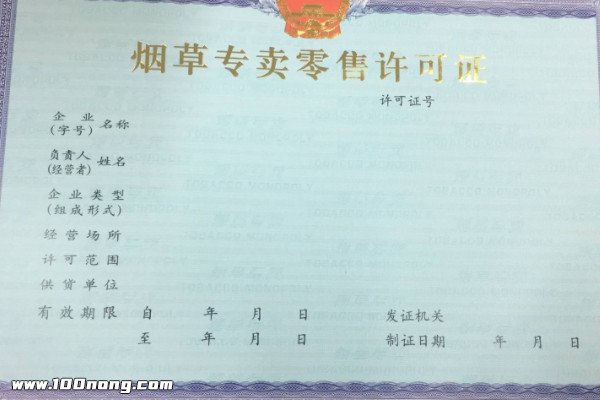 烟草专卖零售许可证
许可证号
企业
(字号) 名称
负责人
(经营者) 姓名
企业类型
(组成形式)
经营场所
许可范围
供货单位
有效期限 自 年 月 日 发证机关
至 年 月 日 制证日期 年 月 日
www.100nong.com